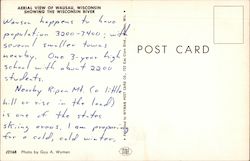 AERIAL VIEW OF WAUSAU, WISCONSIN
SHOWING THE WISCONSIN RIVER
Wausau happens to have
population 3200-3400; with
several smaller towns
nearby. One 3-year high
school with about 2200
students.
Nearby Ripen Mt. Co (little
hill or rise in the land)
is one of the states
skiing areas. I am preparing
for a cold, cold winter.
J2168 Photo by Guy A. Wyman
POST CARD